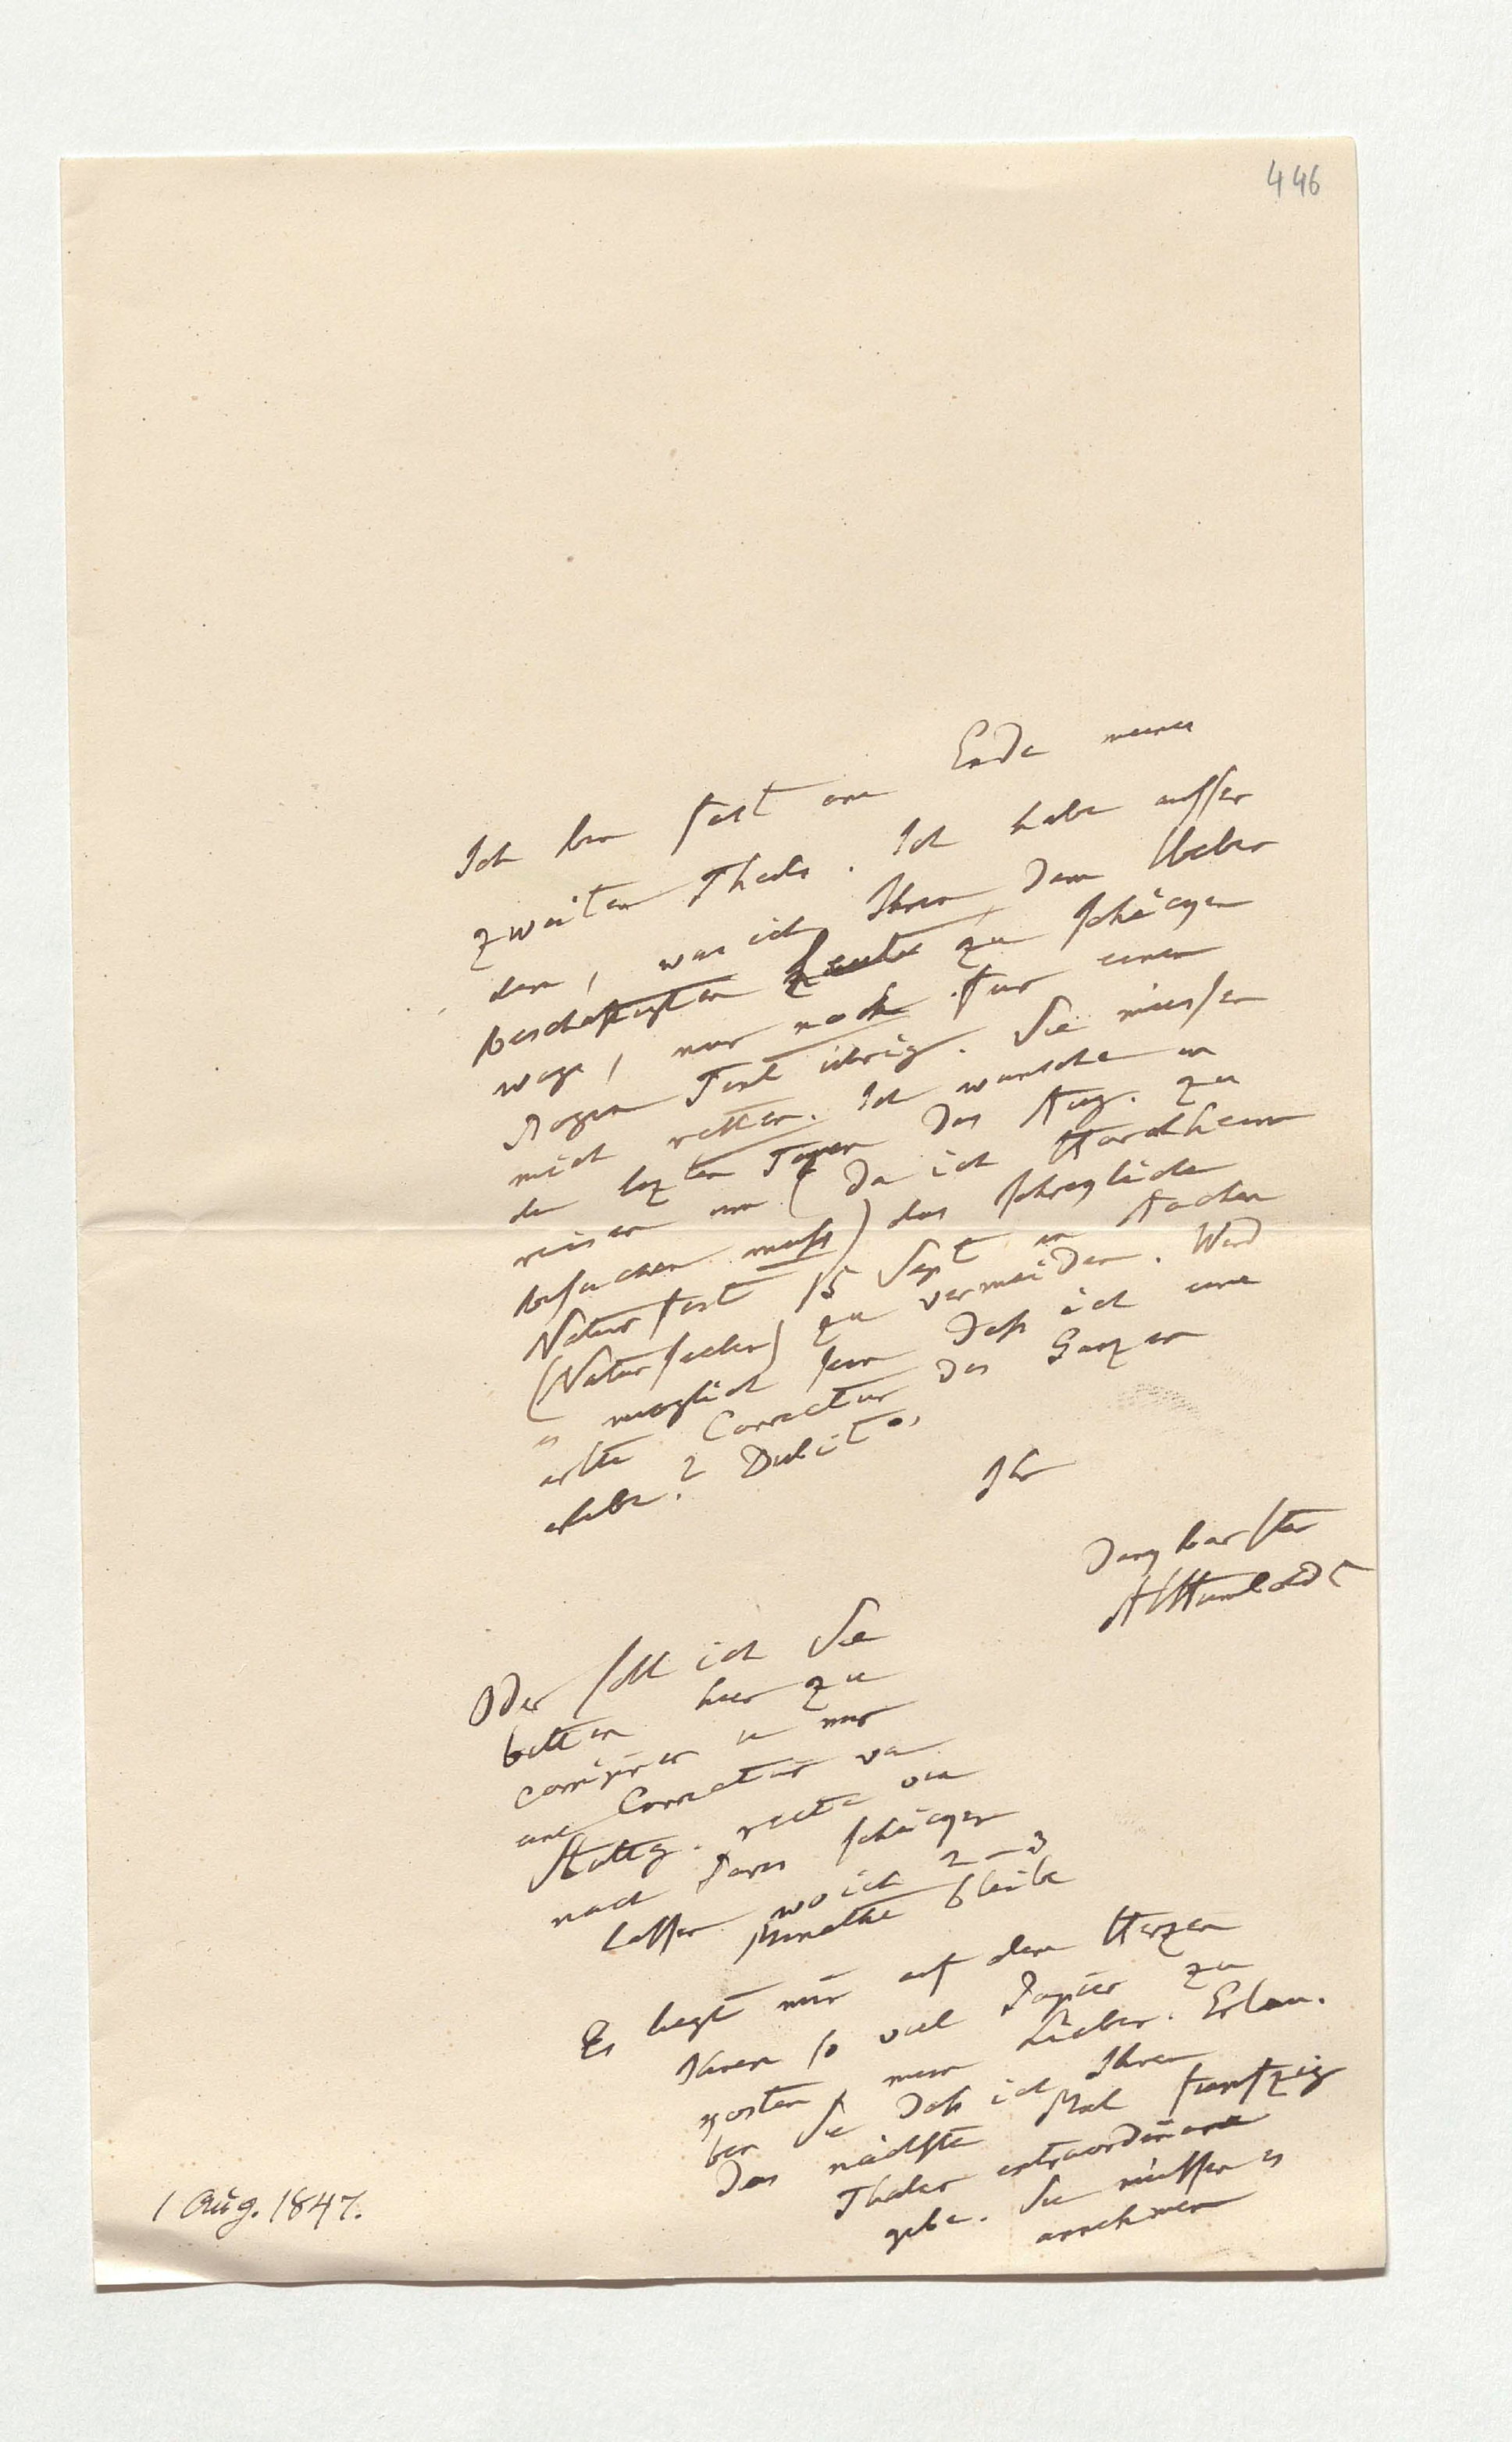 446
Ich bin fast am Ende meines
zweiten Theils. Ich habe ausser
dem, was ich Ihnen dem Ueber
beschäftigten heute zu schikken
wage, nur noch für einen
Bogen Text übrig. Sie müssen
mich retten. Ich wünsche in
den lezten Tagen des Aug. zu
reisen um (da ich Hardtheim
besuchen muss) das schrekliche
Naturfest 15 Sept in Aachen
(Natur) zu vermeiden. Wird
es möglich sein dass ich eine
erste Correctur des Ganzen
erlebe? Dubito.
Ihr
dankbarster
AlHumboldt
Oder soll ich Sie
bitten hier zu
corrigiren u mir
eine Correctur von
Stuttg. recta via
nach Paris schikken
lassen wo ich 2–3
Monathe bleibe
Es liegt mir auf dem Herzen
Ihnen so viel Papier zu
kosten mein Lieber. Erlau-
ben Sie dass ich Ihnen
das nächste Mal funfzig
Thaler extraordinär
gebe. Sie müssen es
annehmen
1 Aug. 1847.